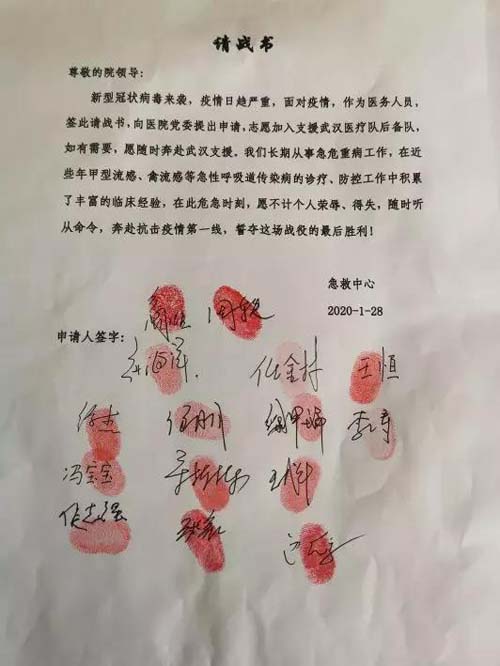 请战书
尊敬的院领导：
新型冠状病毒来袭，疫情日趋严重，面对疫情，作为医务人员，
签此请战书，向医院党委提出申请，志愿加入支援武汉医疗队后备队，
如有需要，愿随时奔赴武汉支援。我们长期从事急危重病工作，在近
些年甲型流感、禽流感等急性呼吸道传染病的诊疗、防控工作中积累
了丰富的临床经验，在此危急时刻，愿不计个人荣辱、得失，随时听
从命令，奔赴抗击疫情第一线，誓夺这场战役的最后胜利！
急救中心
2020-1-28
申请人签字：
王恒
徐杰
冯宝宝